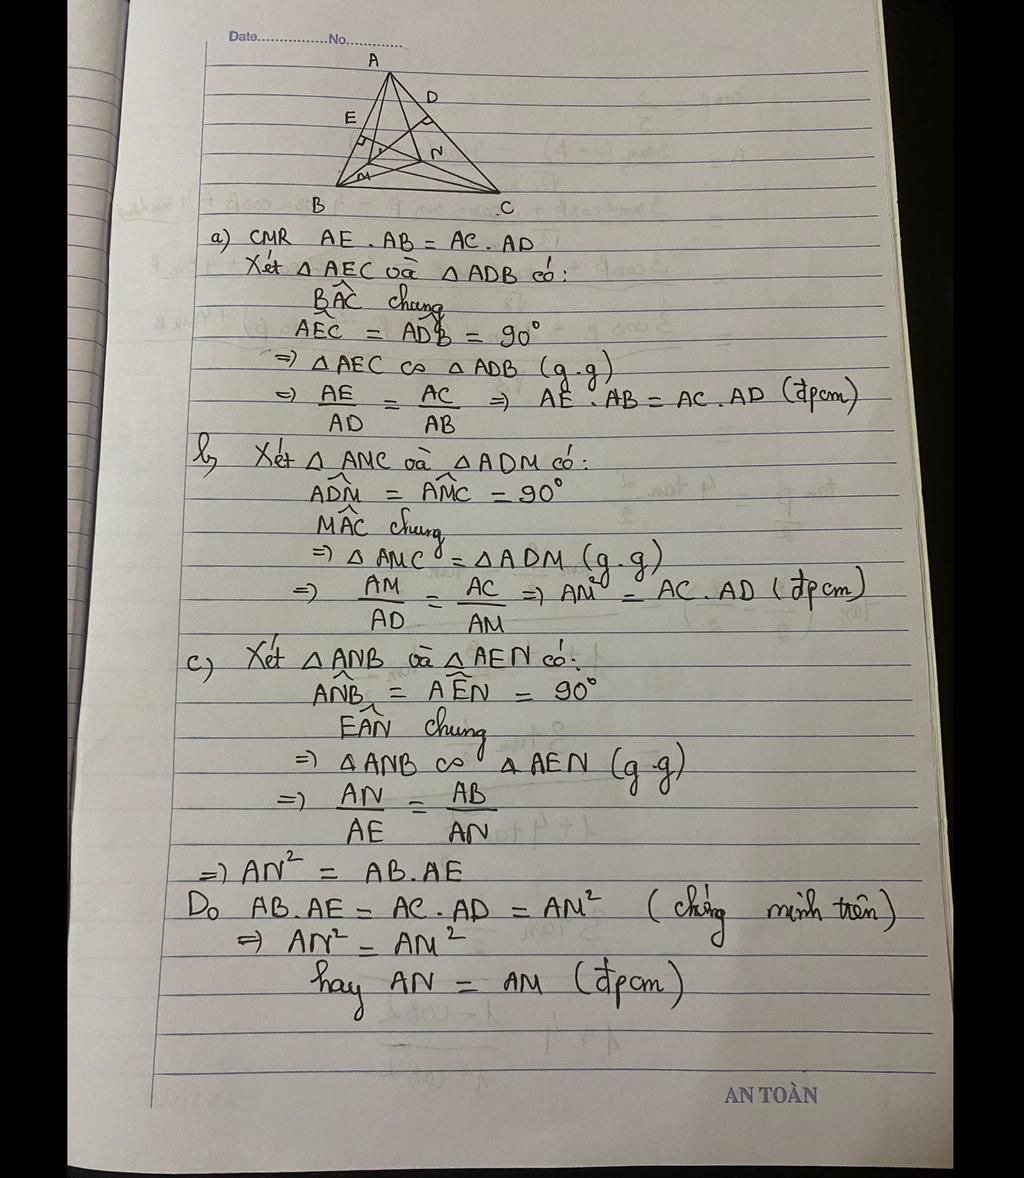 Date...............No.............
A
D
E
N
M
B
C
a) CMR AE . AB = AC . AD
Xét △ AEC và △ ADB có :
BÂC chung
AÊC = AD̂B = 90°
=> △ AEC ∽ △ ADB (g.g)
=> AE/AD = AC/AB => AE . AB = AC . AD (đpcm)
b, Xét △ AMC và △ ADM có :
AD̂M = AM̂C = 90°
MÂC chung
=> △ AMC = △ ADM (g.g)
=> AM/AD = AC/AM => AM² = AC . AD (đpcm)
c, Xét △ ANB và △ AEN có :
AN̂B = AÊN = 90°
EÂN chung
=> △ ANB ∽ △ AEN (g.g)
=> AN/AE = AB/AN
=> AN² = AB.AE
Do AB.AE = AC.AD = AM² (chứng minh trên)
=> AN² = AM²
hay AN = AM (đpcm)
AN TOÀN